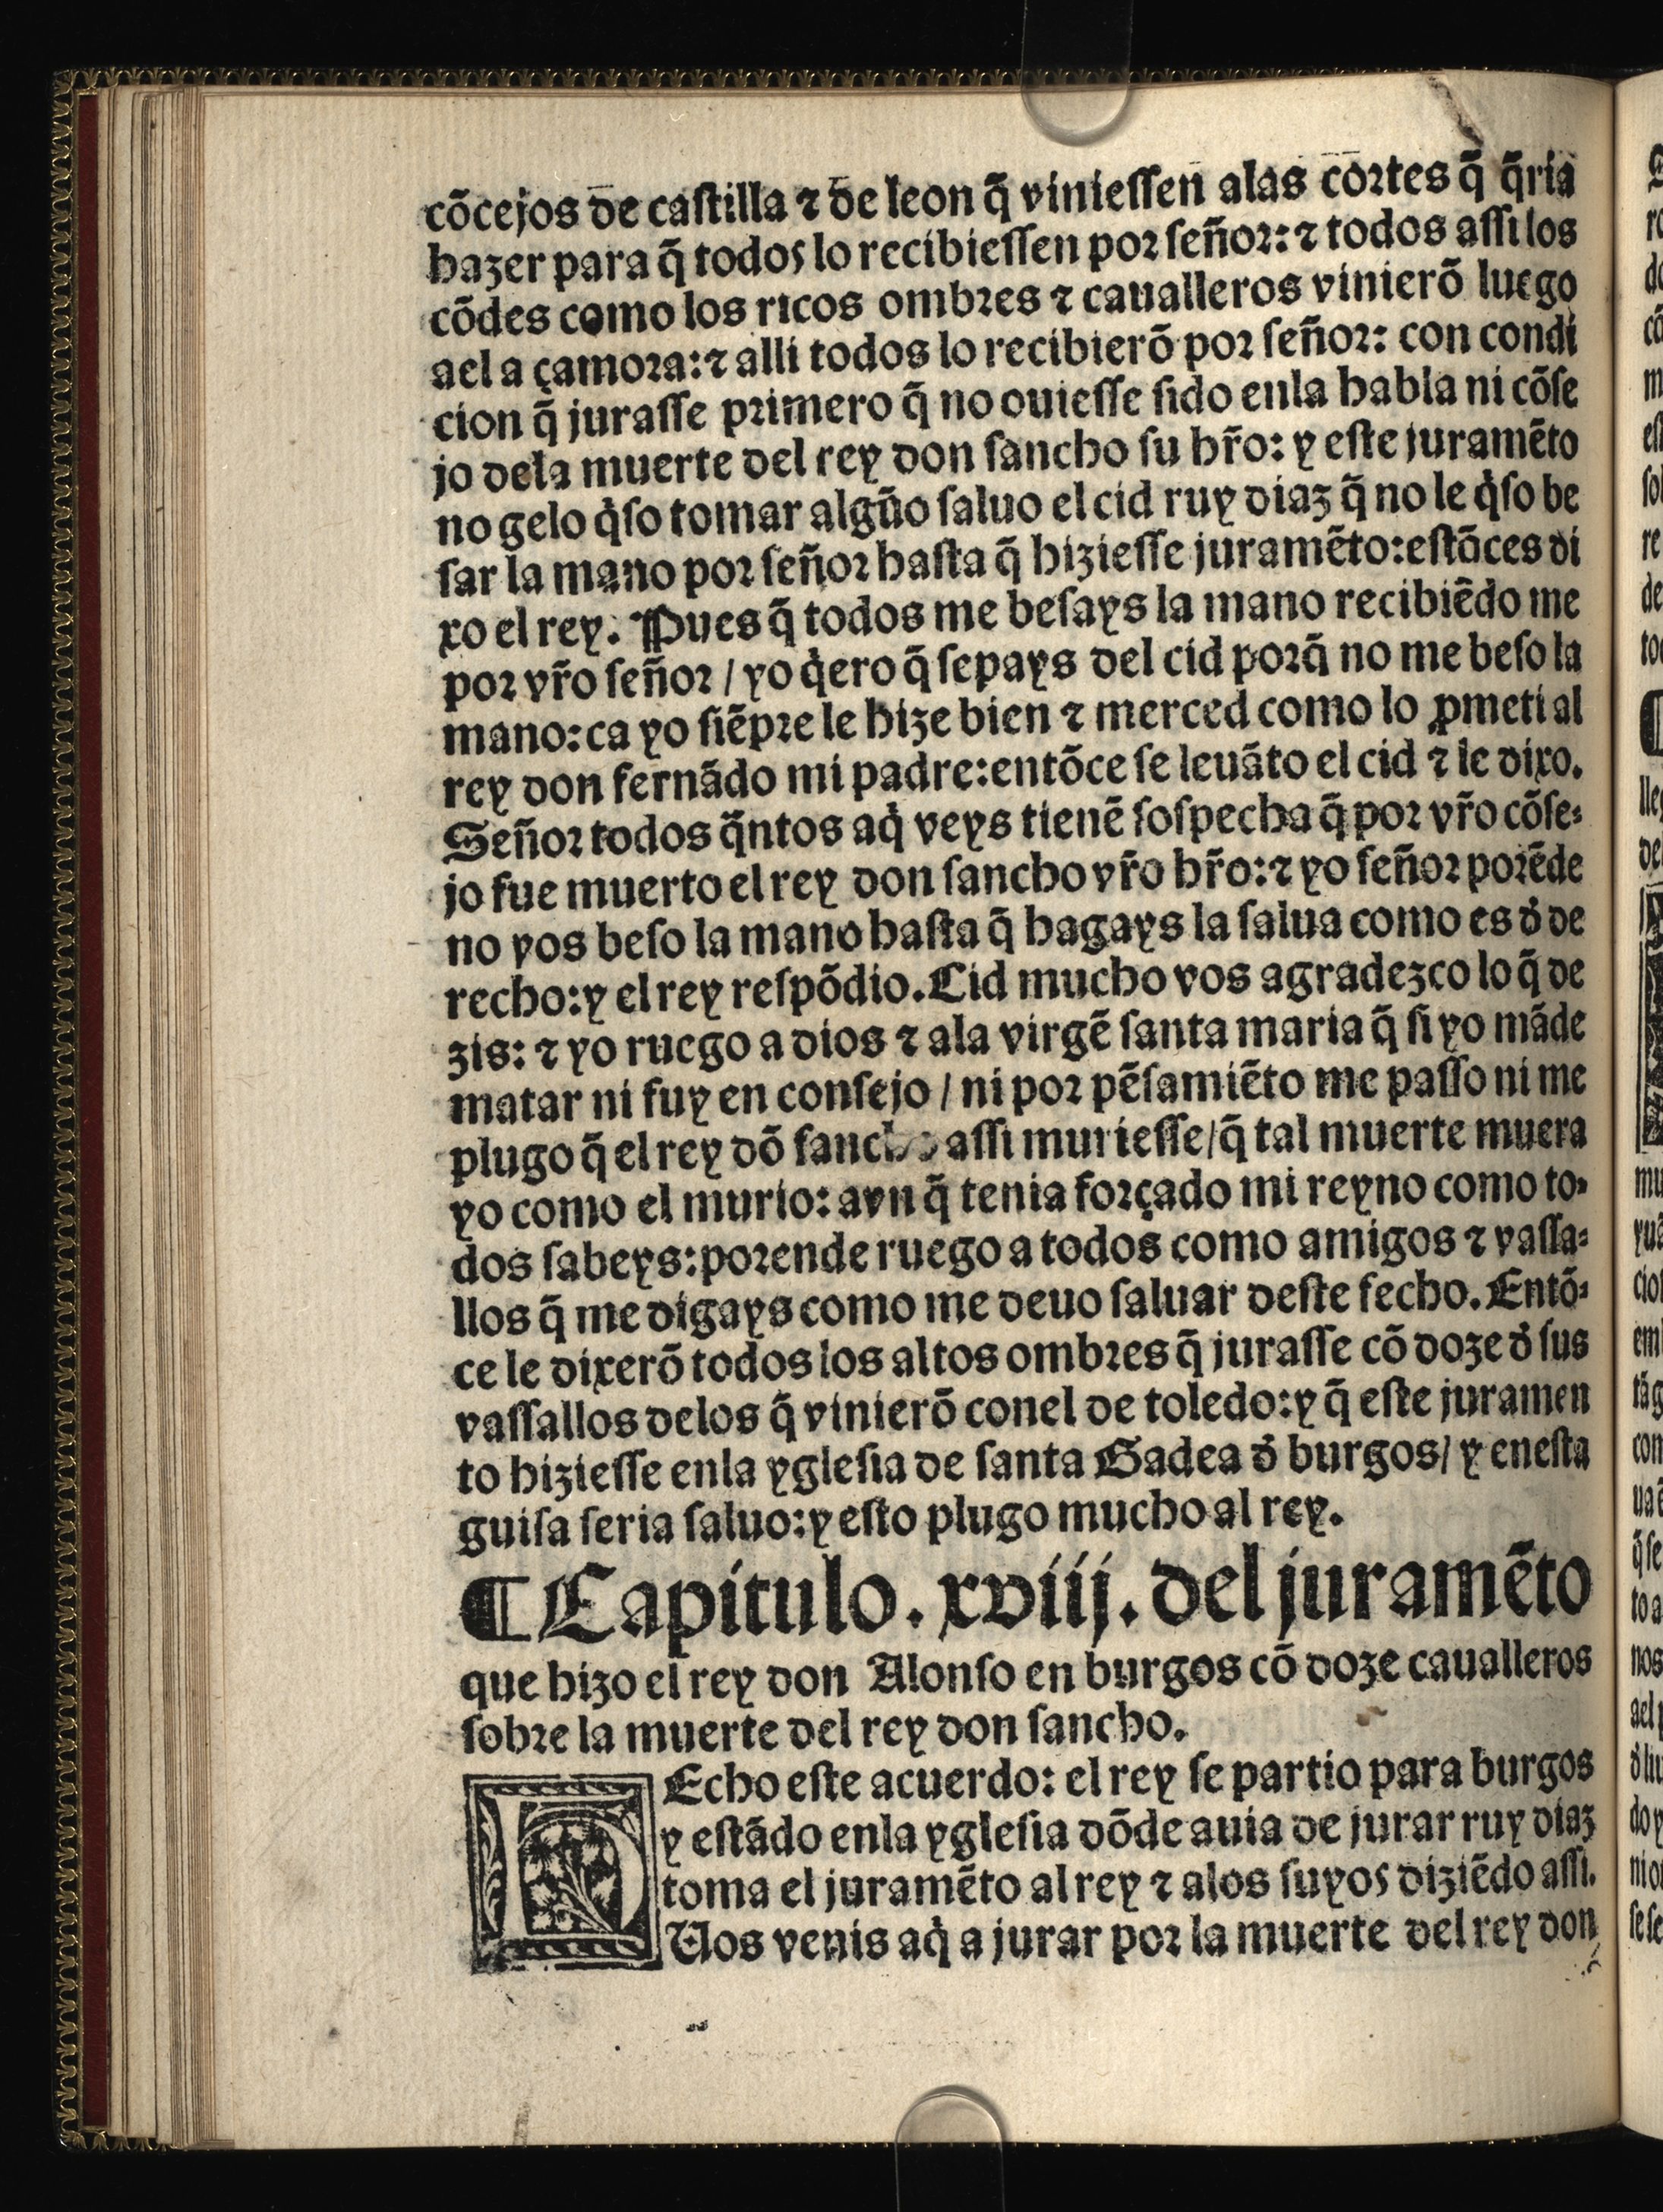 cõcejos de caſtilla ⁊ de leon q̃ vinieſſen alas cortes q̃ q̃ria
hazer para q̃ todos lo recibieſſen por ſeñor: ⁊ todos aſſi los
cõdes como los ricos ombres ⁊ caualleros vinierõ luego
ael a çamora: ⁊ alli todos lo recibierõ por ſeñor: con condi
cion q̃ juraſſe primero q̃ no ouieſſe ſido enla habla ni cõſe
jo dela muerte del rey don ſancho ſu hr̃o: y eſte juramẽto
no gelo q̇ſo tomar algũo ſaluo el cid ruy diaz q̃ no le q̇ſo be
ſar la mano por ſeñor haſta q̃ hizieſſe juramẽto: eſtõces di
xo el rey. Pues q̃ todos me beſays la mano recibiẽdo me
por vr̃o ſeñor / yo q̇ero q̃ ſepays del cid porq̃ no me beſo la
mano: ca yo ſiẽpre le hize bien ⁊ merced como lo ꝓmeti al
rey don fernãdo mi padre: entõce ſe leuãto el cid ⁊ le dixo.
Señor todos q̃ntos aq̇ veys tienẽ ſoſpecha q̃ por vr̃o cõſe-
jo fue muerto el rey don ſancho vr̃o hr̃o: ⁊ yo ſeñor porẽde
no vos beſo la mano haſta q̃ hagays la ſalua como es d̓ de
recho: y el rey reſpõdio. Cid mucho vos agradezco lo q̃ de
zis: ⁊ yo ruego a dios ⁊ ala virgẽ ſanta maria q̃ ſi yo mãde
matar ni fuy en conſejo / ni por pẽſamiẽto me paſſo ni me
plugo q̃ el rey dõ ſancho aſſi murieſſe / q̃ tal muerte muera
yo como el murio: avn q̃ tenia forçado mi reyno como to-
dos ſabeys: porende ruego a todos como amigos ⁊ vaſſa-
llos q̃ me digays como me deuo ſaluar deſte fecho. Entõ-
ce le dixerõ todos los altos ombres q̃ juraſſe cõ doze d̓ ſus
vaſſallos delos q̃ vinierõ conel de toledo: y q̃ eſte juramen
to hizieſſe enla ygleſia de ſanta Gadea d̓ burgos / y eneſta
guiſa ſeria ſaluo: y eſto plugo mucho al rey.
¶ Capitulo. xviij. del juramẽto
que hizo el rey don Alonſo en burgos cõ doze caualleros
ſobre la muerte del rey don ſancho.
Echo eſte acuerdo: el rey ſe partio para burgos
y eſtãdo enla ygleſia dõde auia de jurar ruy diaz
toma el juramẽto al rey ⁊ alos ſuyos diziẽdo aſſi.
Uos venis aq̇ a jurar por la muerte del rey don